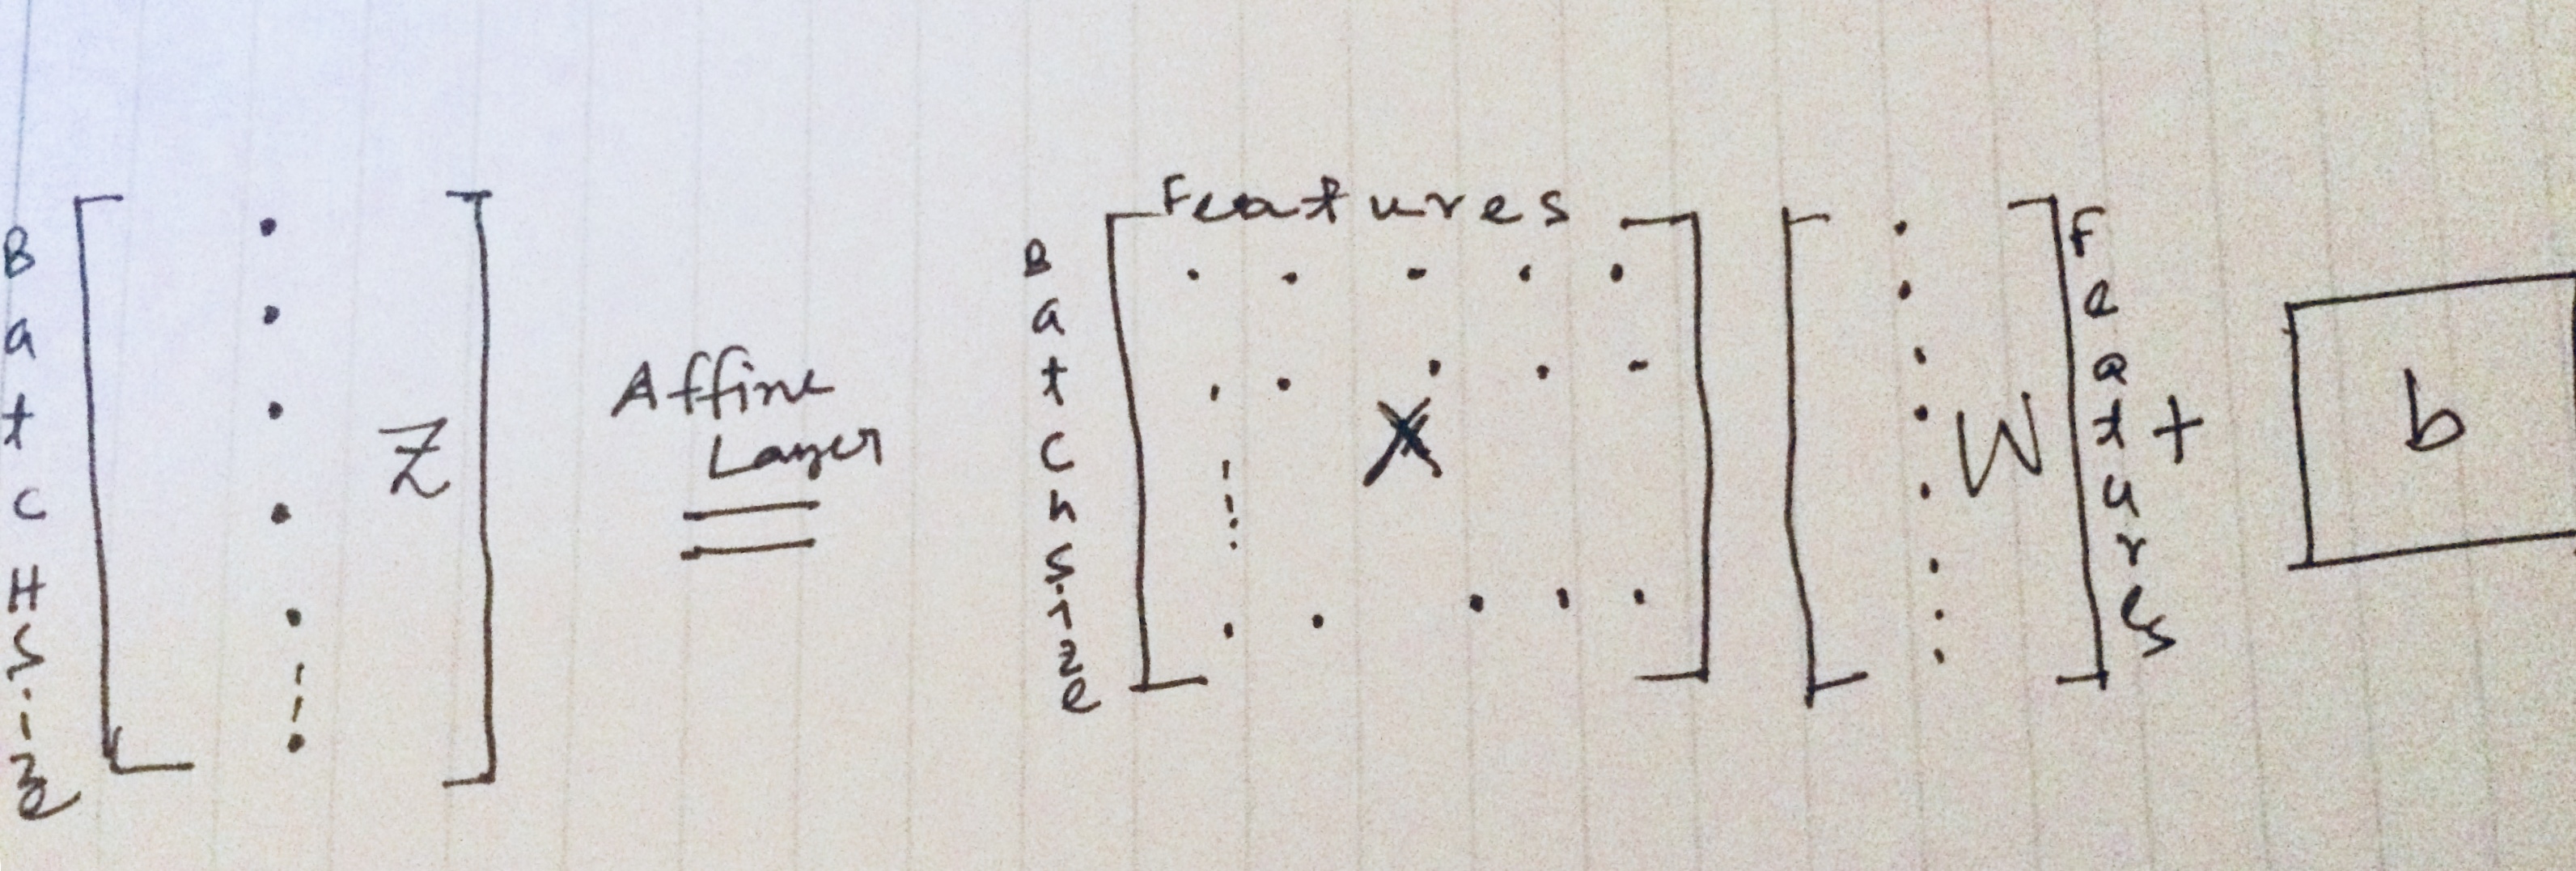 BatcHSize
Z
Affine
Layer
=
Features
BatchSize
X
W
Features
+
b